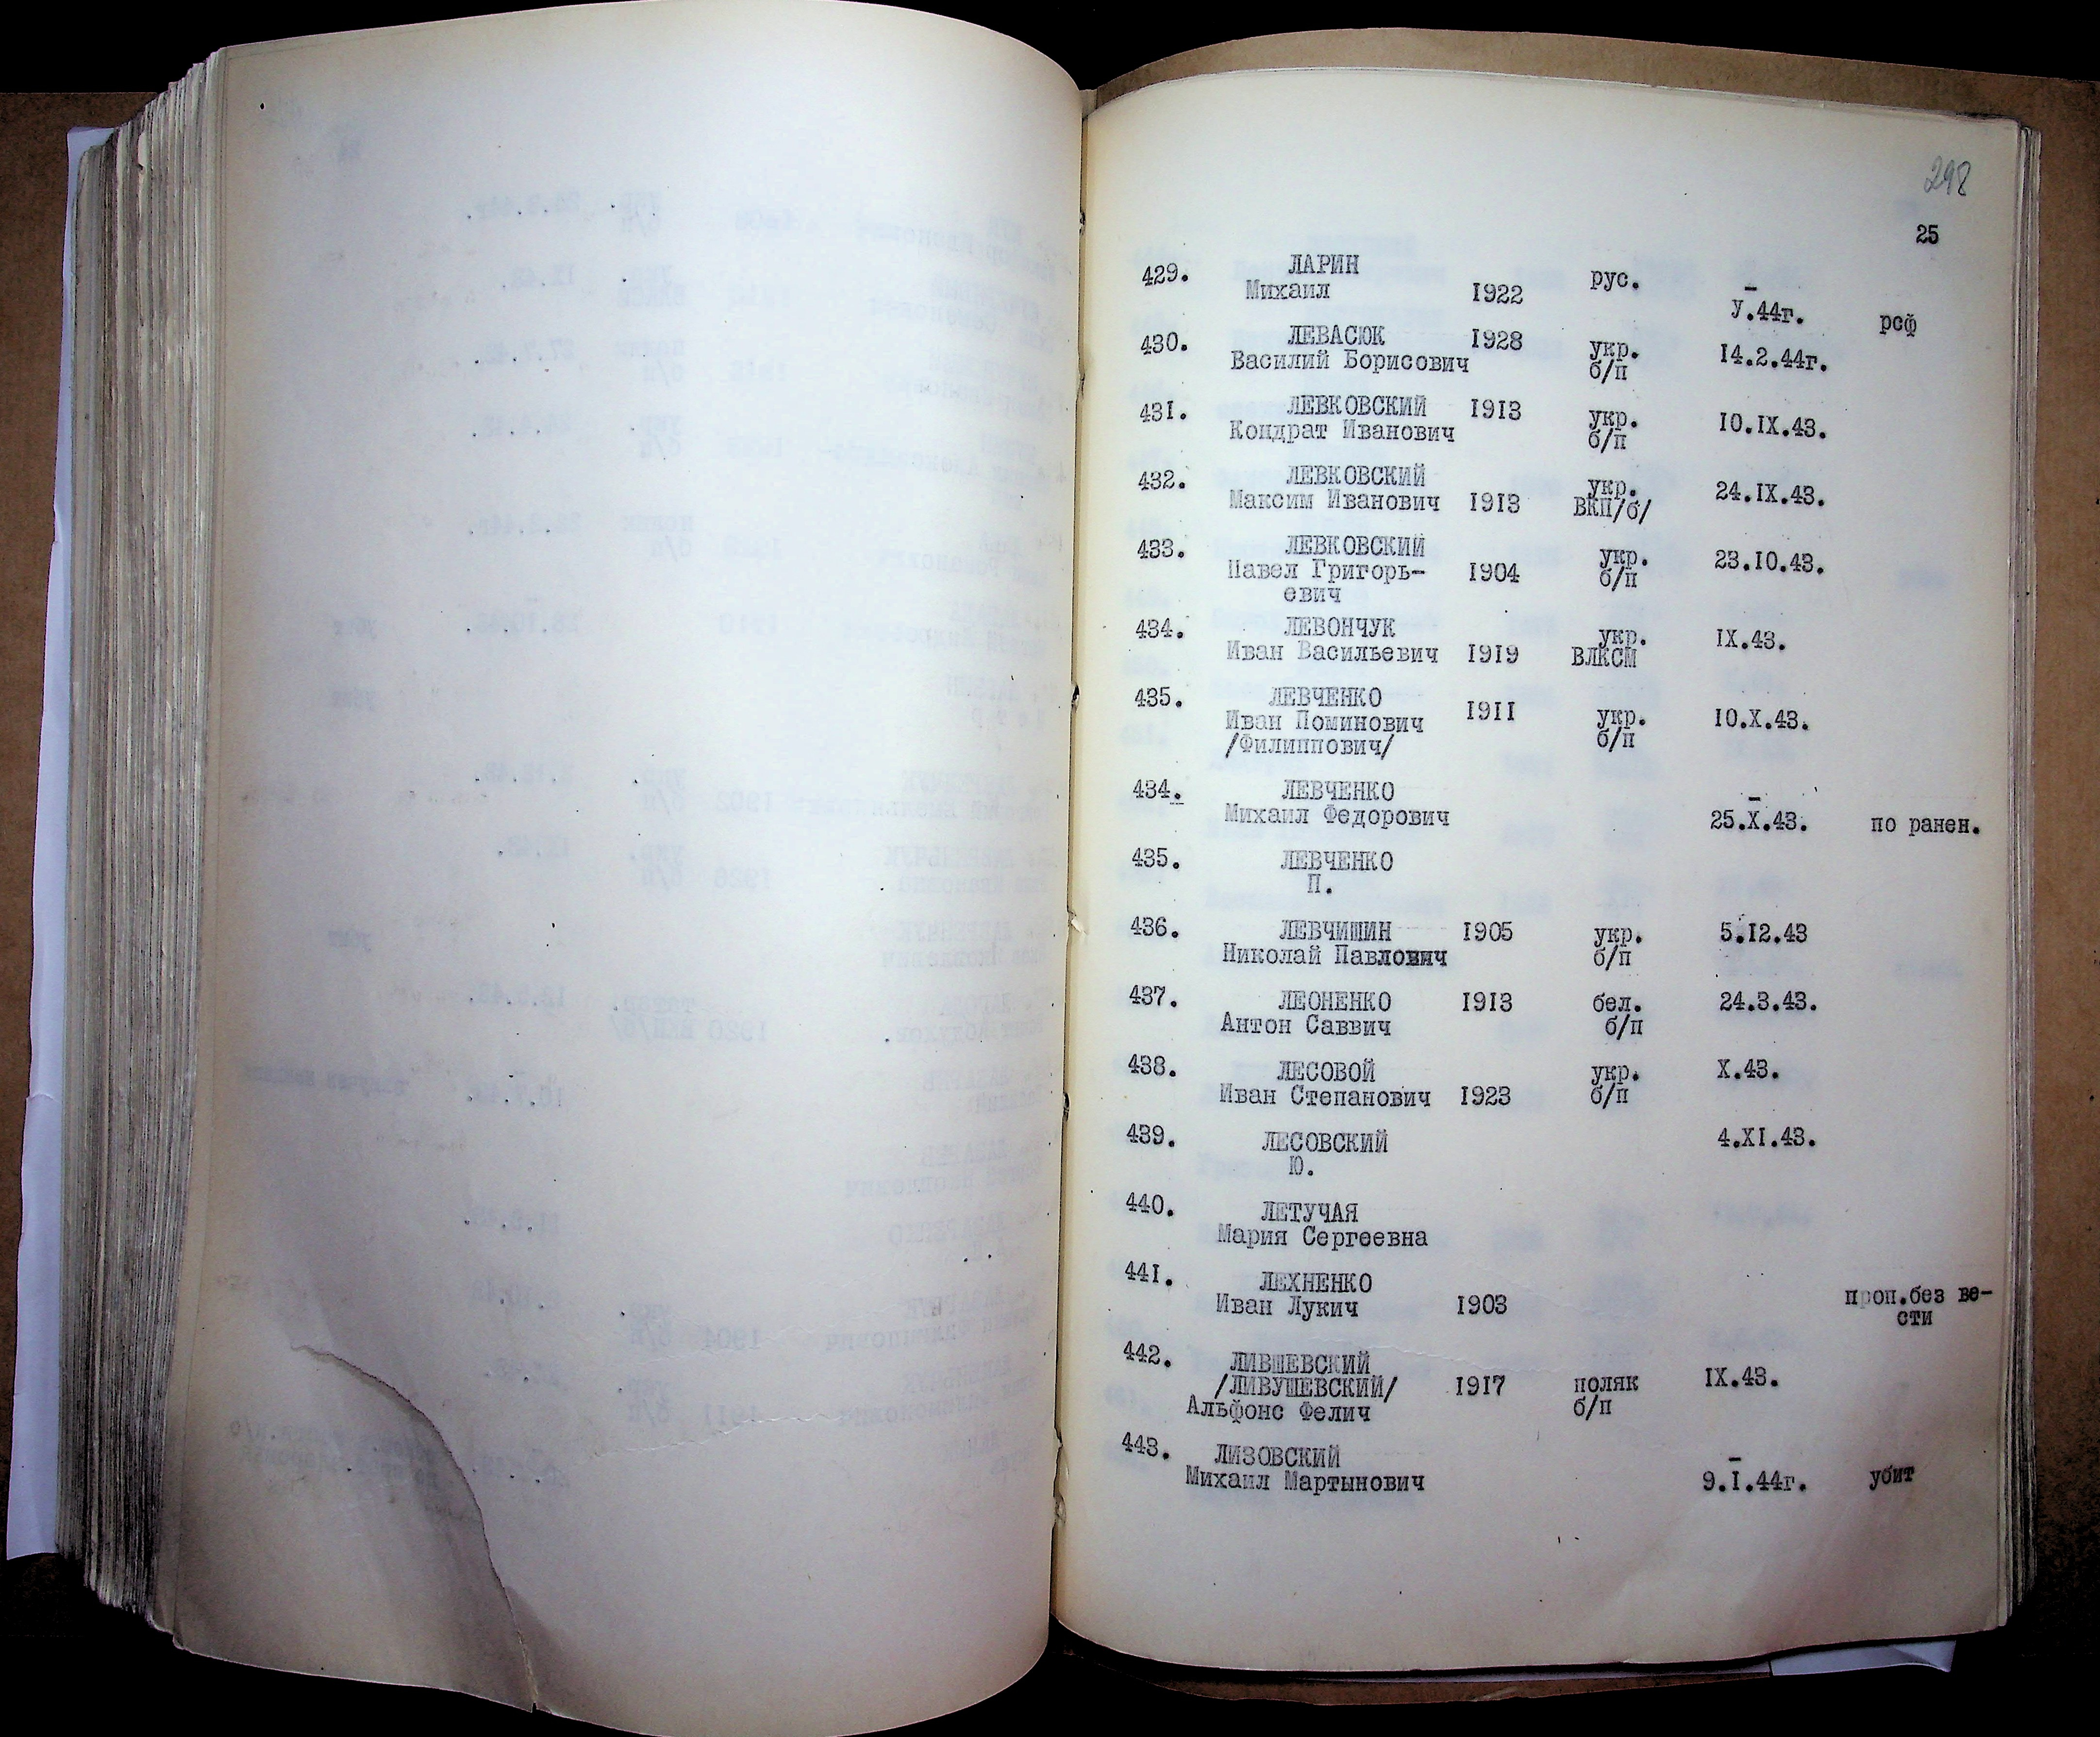 298
25
429. ЛАРИН
Михаил 1922 рус. У.44г. рсф
430. ЛЕВАСЮК 1928 укр. 14.2.44г.
Василий Борисович б/п
431. ЛЕВКОВСКИЙ 1913 укр. 10.IX.43.
Кондрат Иванович б/п
432. ЛЕВКОВСКИЙ укр. 24.IX.43.
Максим Иванович 1913 ВКП/б/
433. ЛЕВКОВСКИЙ укр. 23.10.43.
Павел Григорь- 1904 б/п
евич
434. ЛЕВОНЧУК укр. IX.43.
Иван Васильевич 1919 ВЛКСМ
435. ЛЕВЧЕНКО 1911 укр. 10.X.43.
Иван Поминович б/п
/Филиппович/
434. ЛЕВЧЕНКО
Михаил Федорович 25.X.43. по ранен.
435. ЛЕВЧЕНКО
П.
436. ЛЕВЧИШИН 1905 укр. 5.12.43
Николай Павлович б/п
437. ЛЕОНЕНКО 1913 бел. 24.3.43.
Антон Саввич б/п
438. ЛЕСОВОЙ укр. X.43.
Иван Степанович 1923 б/п
439. ЛЕСОВСКИЙ 4.XI.43.
Ю.
440. ЛЕТУЧАЯ
Мария Сергеевна
441. ЛЕХНЕНКО проп.без ве-
Иван Лукич 1903 сти
442. ЛИВШЕВСКИЙ
/ЛИВУШЕВСКИЙ/ 1917 поляк IX.43.
Альфонс Фелич б/п
443. ЛИЗОВСКИЙ
Михаил Мартынович 9.I.44г. убит